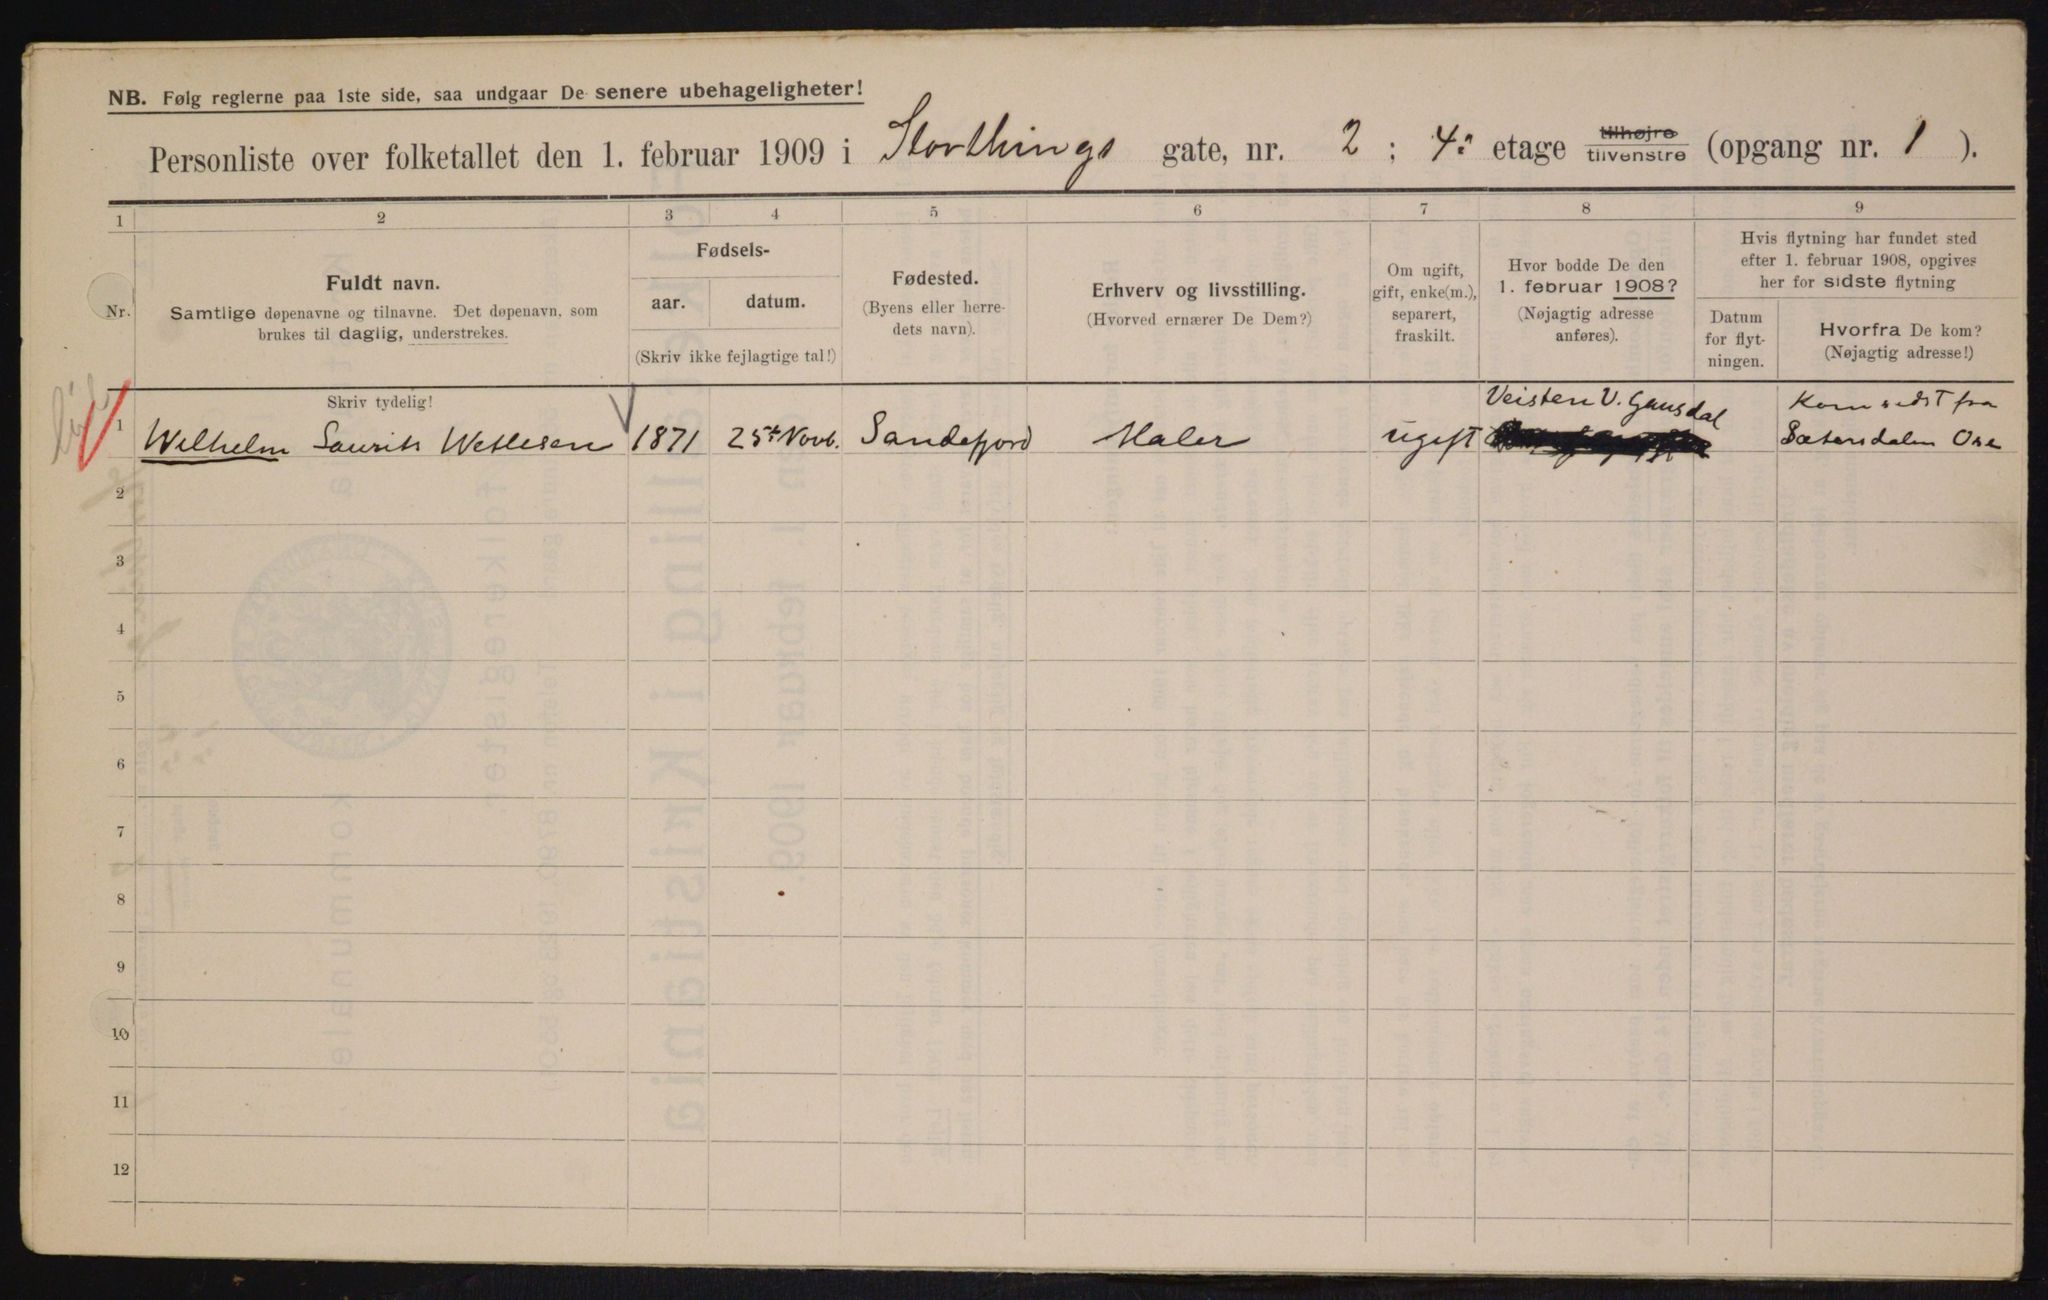 NB. Følg reglerne paa 1ste side, saa undgaar De senere ubehageligheter!
Personliste over folketallet den 1. februar 1909 i Storthings gate, nr. 2 ; 4: etage tilhøjre tilvenstre (opgang nr. 1 ).
1 2 3 4 5 6 7 8 9
Nr.
Fuldt navn.
Samtlige døpenavne og tilnavne. Det døpenavn, som
brukes til daglig, understrekes.
Fødsels-
aar. datum.
(Skriv ikke fejlagtige tal!)
Fødested.
(Byens eller herre-
dets navn).
Erhverv og livsstilling.
(Hvorved ernærer De Dem?)
Om ugift,
gift, enke(m.),
separert,
fraskilt.
Hvor bodde De den
1. februar 1908?
(Nøjagtig adresse
anføres).
Hvis flytning har fundet sted
efter 1. februar 1908, opgives
her for sidste flytning
Datum
for flyt-
ningen.
Hvorfra De kom?
(Nøjagtig adresse!)
Skriv tydelig!
1 Wilhelm Laurits Wetlesen 1871 25de Novb. Sandefjord Maler ugift Veisten V. Gausdal Kom sidst fra
Sætersdalen Ose
2
3
4
5
6
7
8
9
10
11
12